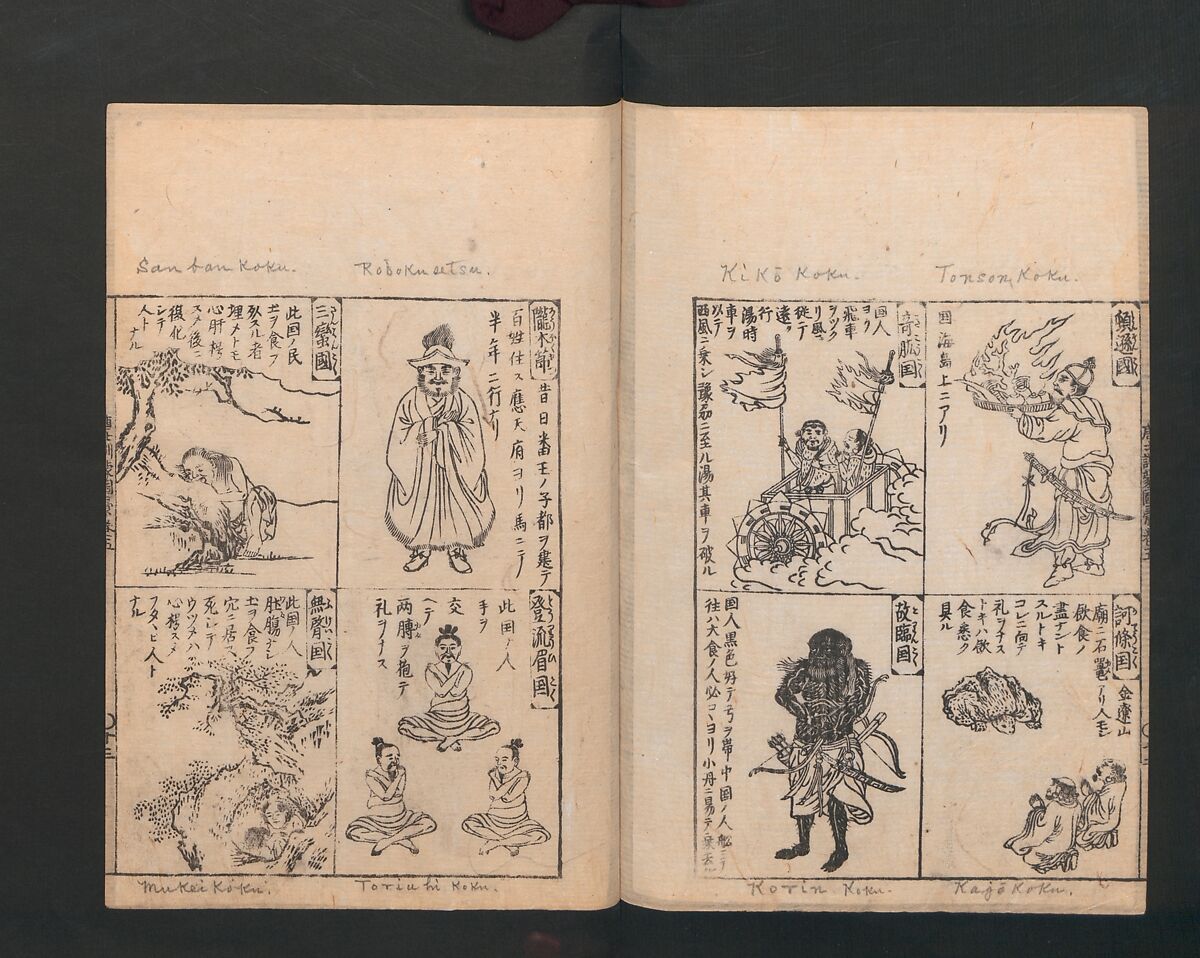 Ki Kō Koku.
Tonson Koku.
頓遜國
国海島上ニアリ
奇肱国
国人
ヨク
飛車
ヲツク
リ風ニ
従テ
遠ク
行
湯時
車ヲ
以テ
西風ニ乗シ豫州ニ至ル湯其車ヲ破ル
訶條国
金遼山
廟ニ石鼉アリ人モシ
飲食ノ
盡ナント
スルトキ
コレニ向テ
礼ヲナス
トキハ飲
食悉ク
具ル
故臨国
国人黒色好テ弓ヲ帯中国ノ人舩ニテ
往ハ大食ノ人必コヽヨリ小舟ニ易テ乗去ル
Korin Koku.
Kajō Koku.
San ban Koku.
Robokusetsu.
昔日番王ノ子都ヲ建テ
百姓住ス應天府ヨリ馬ニテ
半年ニ行ナリ
三蠻國
此国ノ民
土ヲ食フ
死スル者
埋メトモ
心肝朽
スメ後ニ
復化
シテ
人ト
ナル
登流眉国
此国ノ人
手ヲ
交
ヘテ
両膊ヲ抱テ
礼ヲナス
無䏿国
此国ノ人
肚腸ナシ
土ヲ食フ
穴ニ居ス
死シテ
ウツメハ
心朽スメ
フタヽヒ人ト
ナル
Mukei Koku.
Toriuhi Koku.